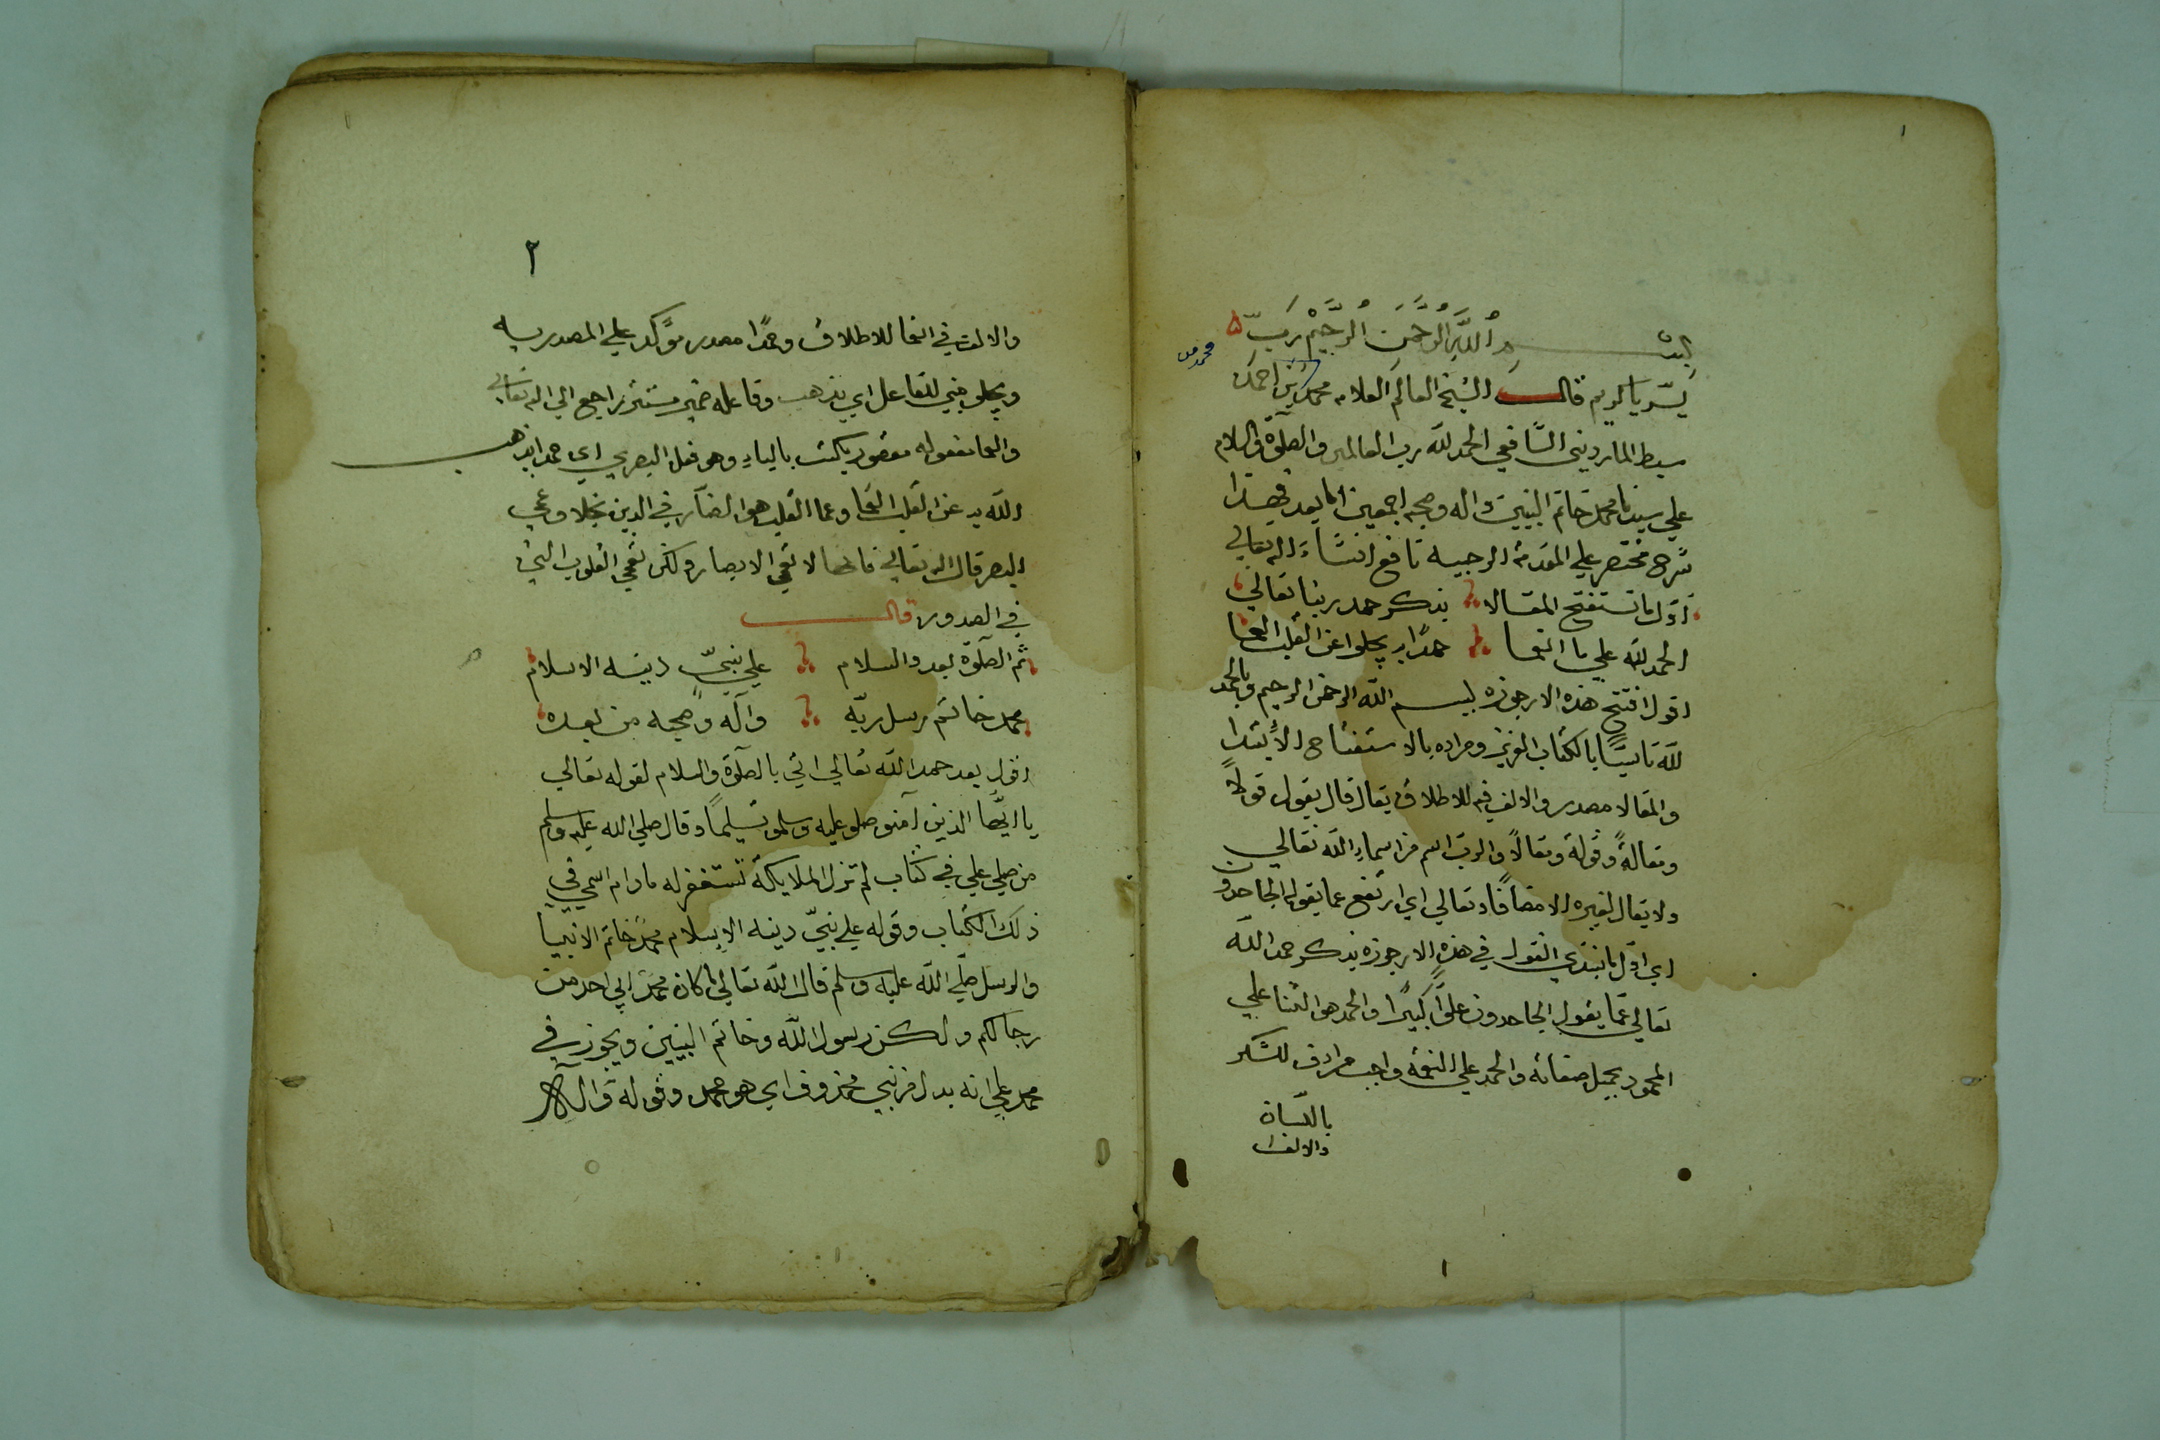 ١
بسم الله الرحمن الرحيم رب
يسر يا كريم قال الشيخ العالم العلامه محمد بن احمد
محمد بن
سبط الماردينى الشافعي الحمد لله رب العالمين والصلوة والسلام
علي سيدنا محمد خاتم النبيين واله وصحبه اجمعين اما بعد فهذا
شرح مختصر علي المقدمة الرحبيه نافع انشاء الله تعالي
اول ما نستفتح المقالا بذكر حمد ربنا تعالي
الحمد لله علي ما انعما حمدا به يجلوا عن القلب العما
اقول افتتح هذه الارجوزه ببسم الله الرحمن الرحيم وبالحمد
لله تاسيًا بالكتاب العزيز ومراده بالاستفتاح الأبتدا
والمقالا مصدر والالف فيه للاطلاق يقال قال يقول قولاً
ومقالةً وقولة ومقالاً والرب اسم من اسماء الله تعالي
ولا يقال لغيره الا مضافًا وتعالي اي ارتفع عما يقوله الجاحدون
اي اول ما نبتدي القول في هذه الارجوزه بذكر حمد الله
تعالي عمّا يقول الجاحدون علوًّا كبيرًا والحمد هو الثنا علي
المحمود بجميل صفاته والحمد علي النعمة واجب مرادف للشكر
باللسان
والالف
١
٢
والالف في انعما للاطلاق وحمدًا مصدر مؤكد علي المصدريه
ويجلو مبني للفاعل اي يذهب وفاعله ضمير مستتر راجع الي الله تعالي
والعما مفعوله مقصور يكتب بالياء وهو فقد البصر اي حمدا يذهب
الله به عن القلب العما وعما القلب هو الضار في الدين بخلاف عمي
البصر قال الله تعالي فانها لا تعمي الابصار ولكن تعمي القلوب التي
في الصدور قال
ثم الصلوة بعد والسلام علي نبيّ دينه الاسلام
محمد خاتم رسل ربّه وآله وصحبه من بعده
اقول بعد حمد الله تعالي اتي بالصلوة والسلام لقوله تعالي
يا ايّها الذين آمنو صلو عليه وسلمو تسليمًا وقال صلي الله عليه وسلم
من صلي علي في كتاب لم تزل الملايكة تستغفر له ما دام اسمي في
ذلك الكتاب وقوله علي نبيّ دينه الاسلام محمد خاتم الانبيا
والرسل صلّي الله عليه وسلم قال الله تعالي ما كان محمد ابي احد من
رجالكم ولكن رسول الله وخاتم النبيين ويجوز في
محمد علي انه بدل من نبي محذوف اي هو محمد وقوله وآله